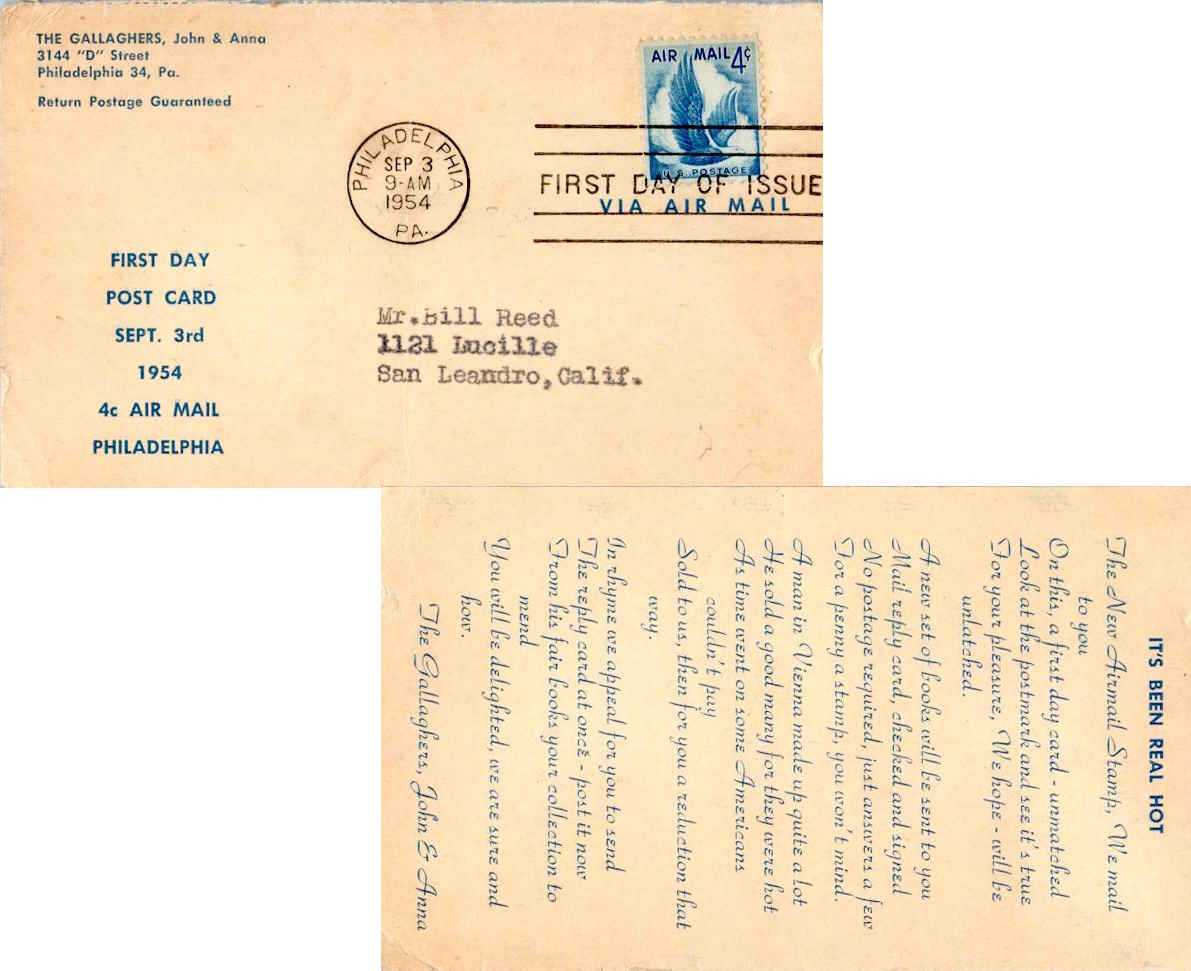 THE GALLAGHERS, John & Anna
3144 "D" Street
Philadelphia 34, Pa.
Return Postage Guaranteed
AIR MAIL 4¢
U.S. POSTAGE
PHILADELPHIA
SEP 3
9-AM
1954
PA.
FIRST DAY OF ISSUE
VIA AIR MAIL
FIRST DAY
POST CARD
SEPT. 3rd
1954
4c AIR MAIL
PHILADELPHIA
Mr.Bill Reed
1121 Lucille
San Leandro,Calif.
IT'S BEEN REAL HOT
The New Airmail Stamp, We mail
to you
On this, a first day card - unmatched
Look at the postmark and see it's true
For your pleasure, We hope - will be
unlatched.
A new set of books will be sent to you
Mail reply card, checked and signed
No postage required, just answers a few
For a penny a stamp, you won't mind.
A man in Vienna made up quite a lot
He sold a good many for they were hot
As time went on some Americans
couldn't pay
Sold to us, then for you a reduction that
way.
In rhyme we appeal for you to send
The reply card at once - post it now
From his fair books your collection to
mend
You will be delighted, we are sure and
how.
The Gallaghers, John & Anna